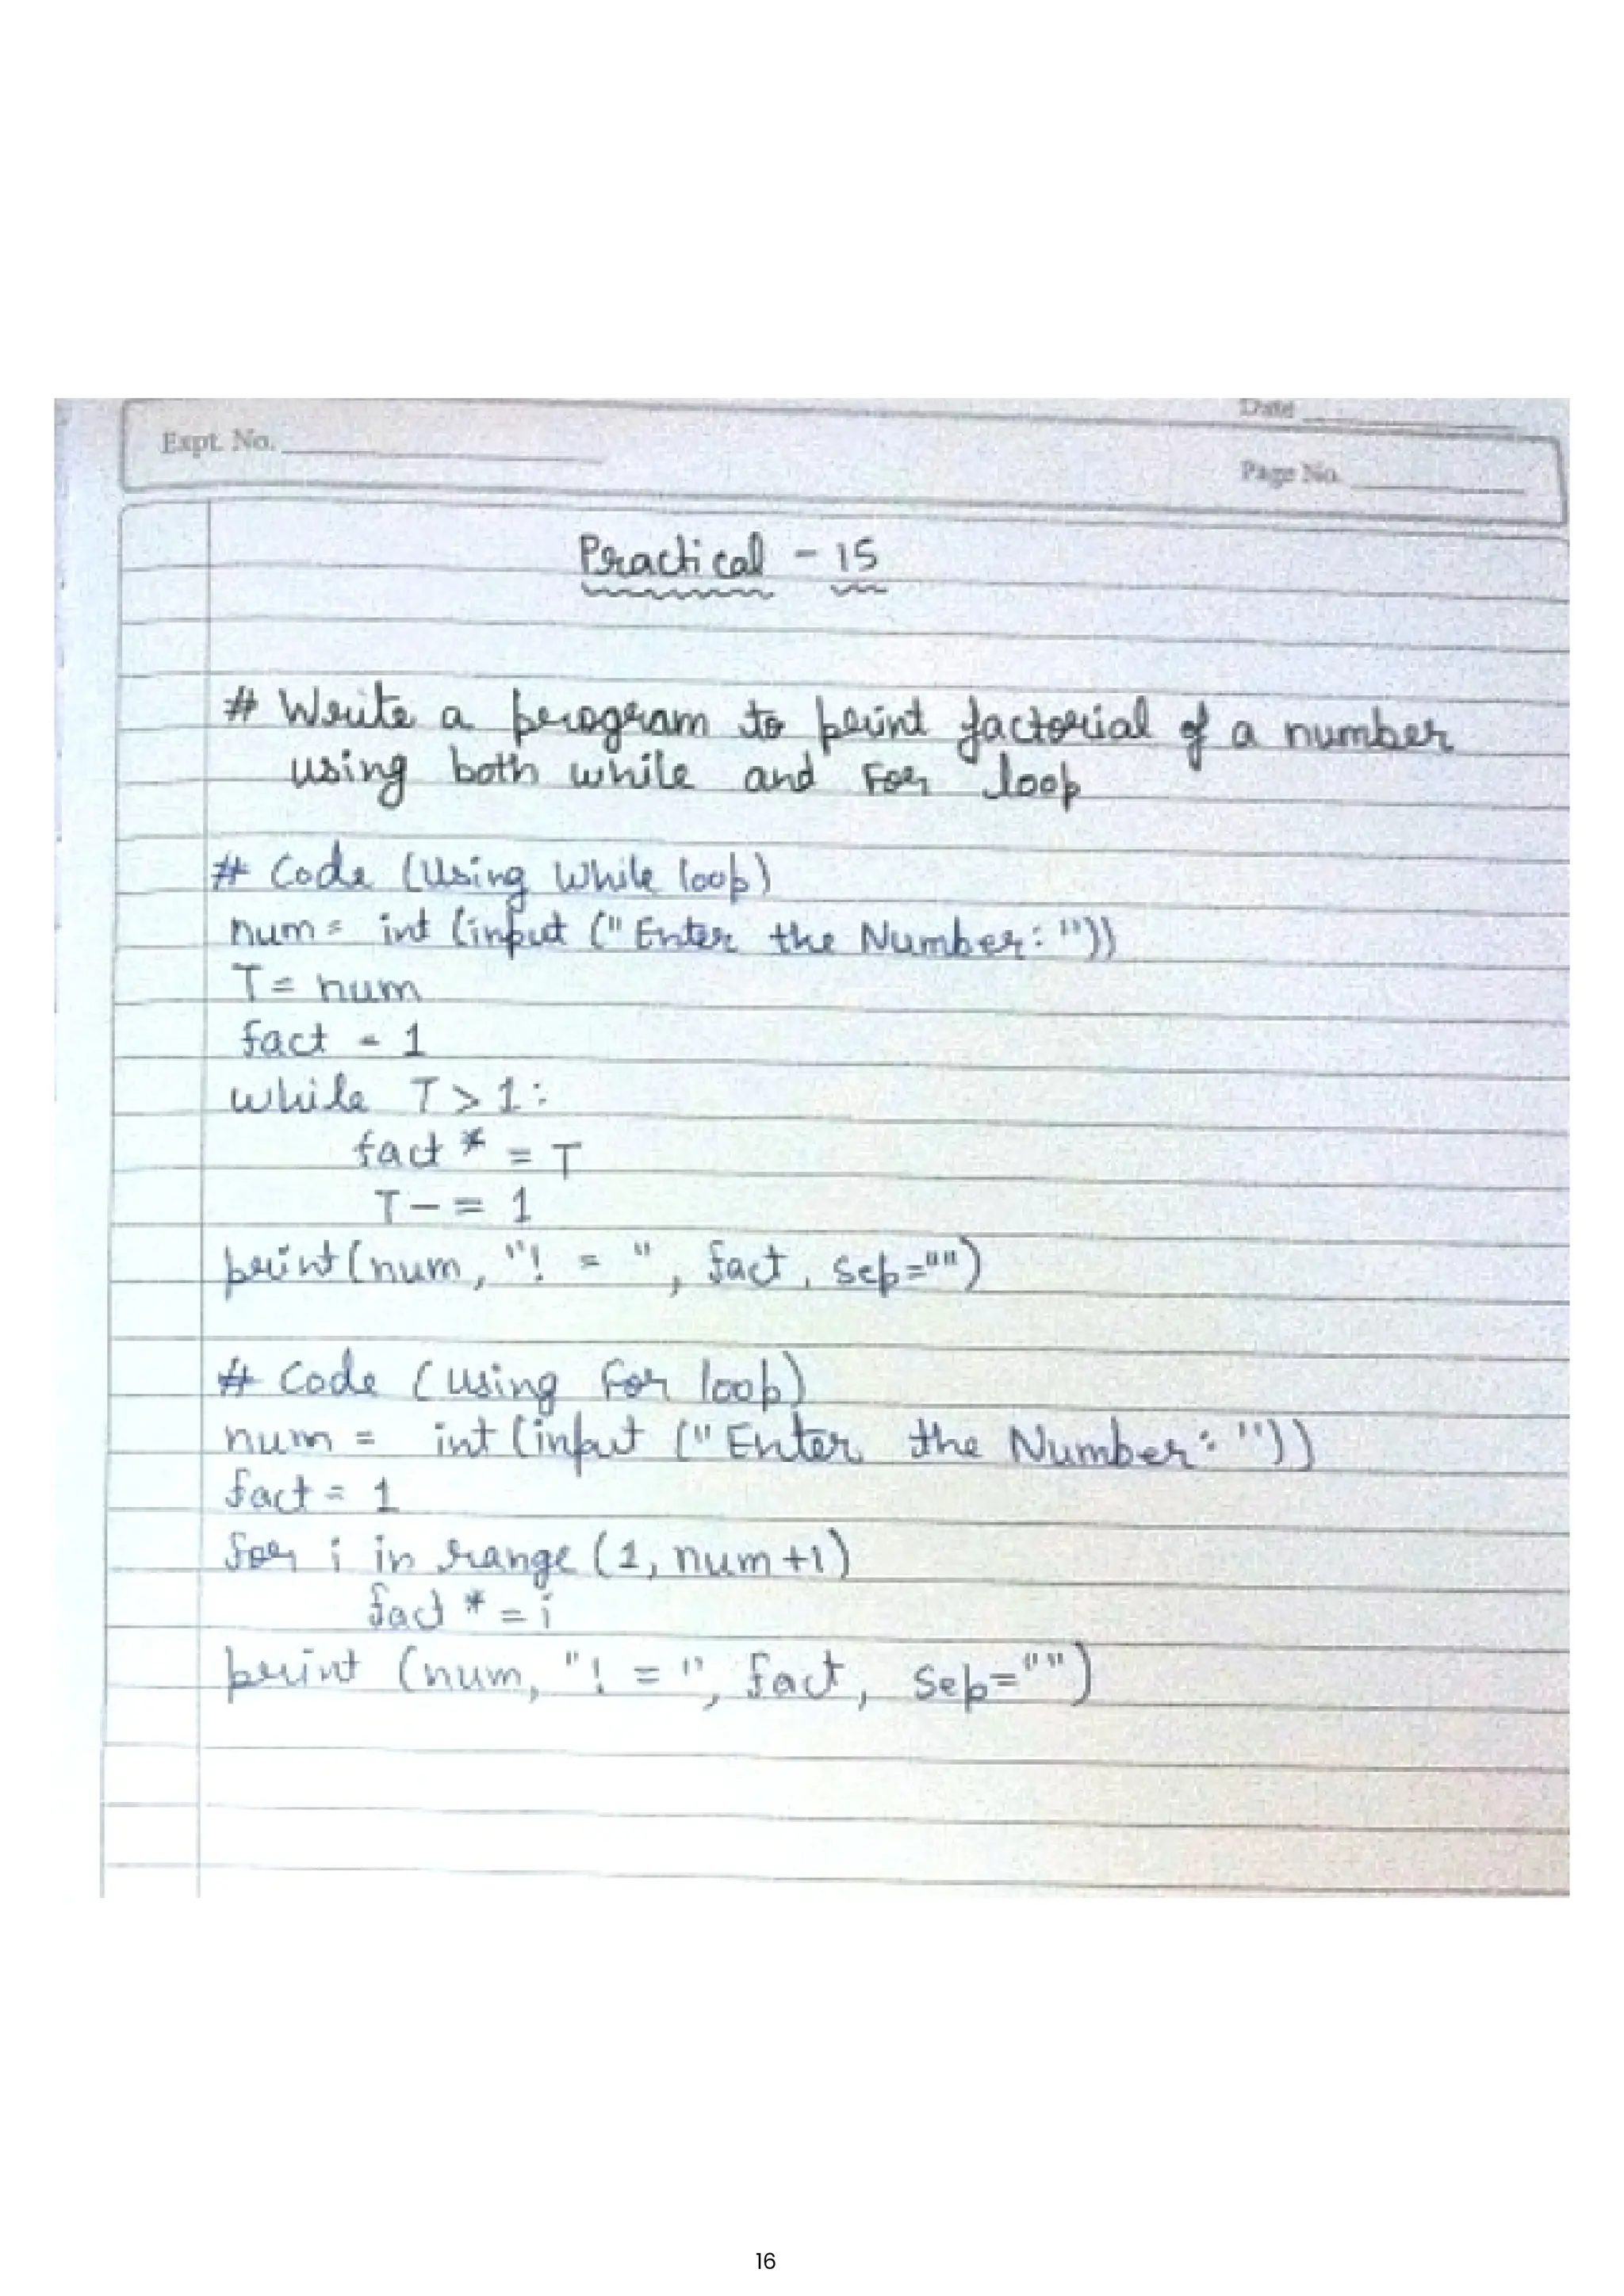 Date
Expt. No.
Page No.
Practical - 15
# Write a program to print factorial of a number
using both while and For loop
# Code (Using While loop)
num = int (input ("Enter the Number: "))
T = num
fact = 1
while T > 1:
fact * = T
T - = 1
print(num, "! = ", fact, sep="")
# Code (using For loop)
num = int (input ("Enter the Number: "))
fact = 1
for i in range (1, num +1)
fact * = i
print (num, "! = ", fact, sep="")
16